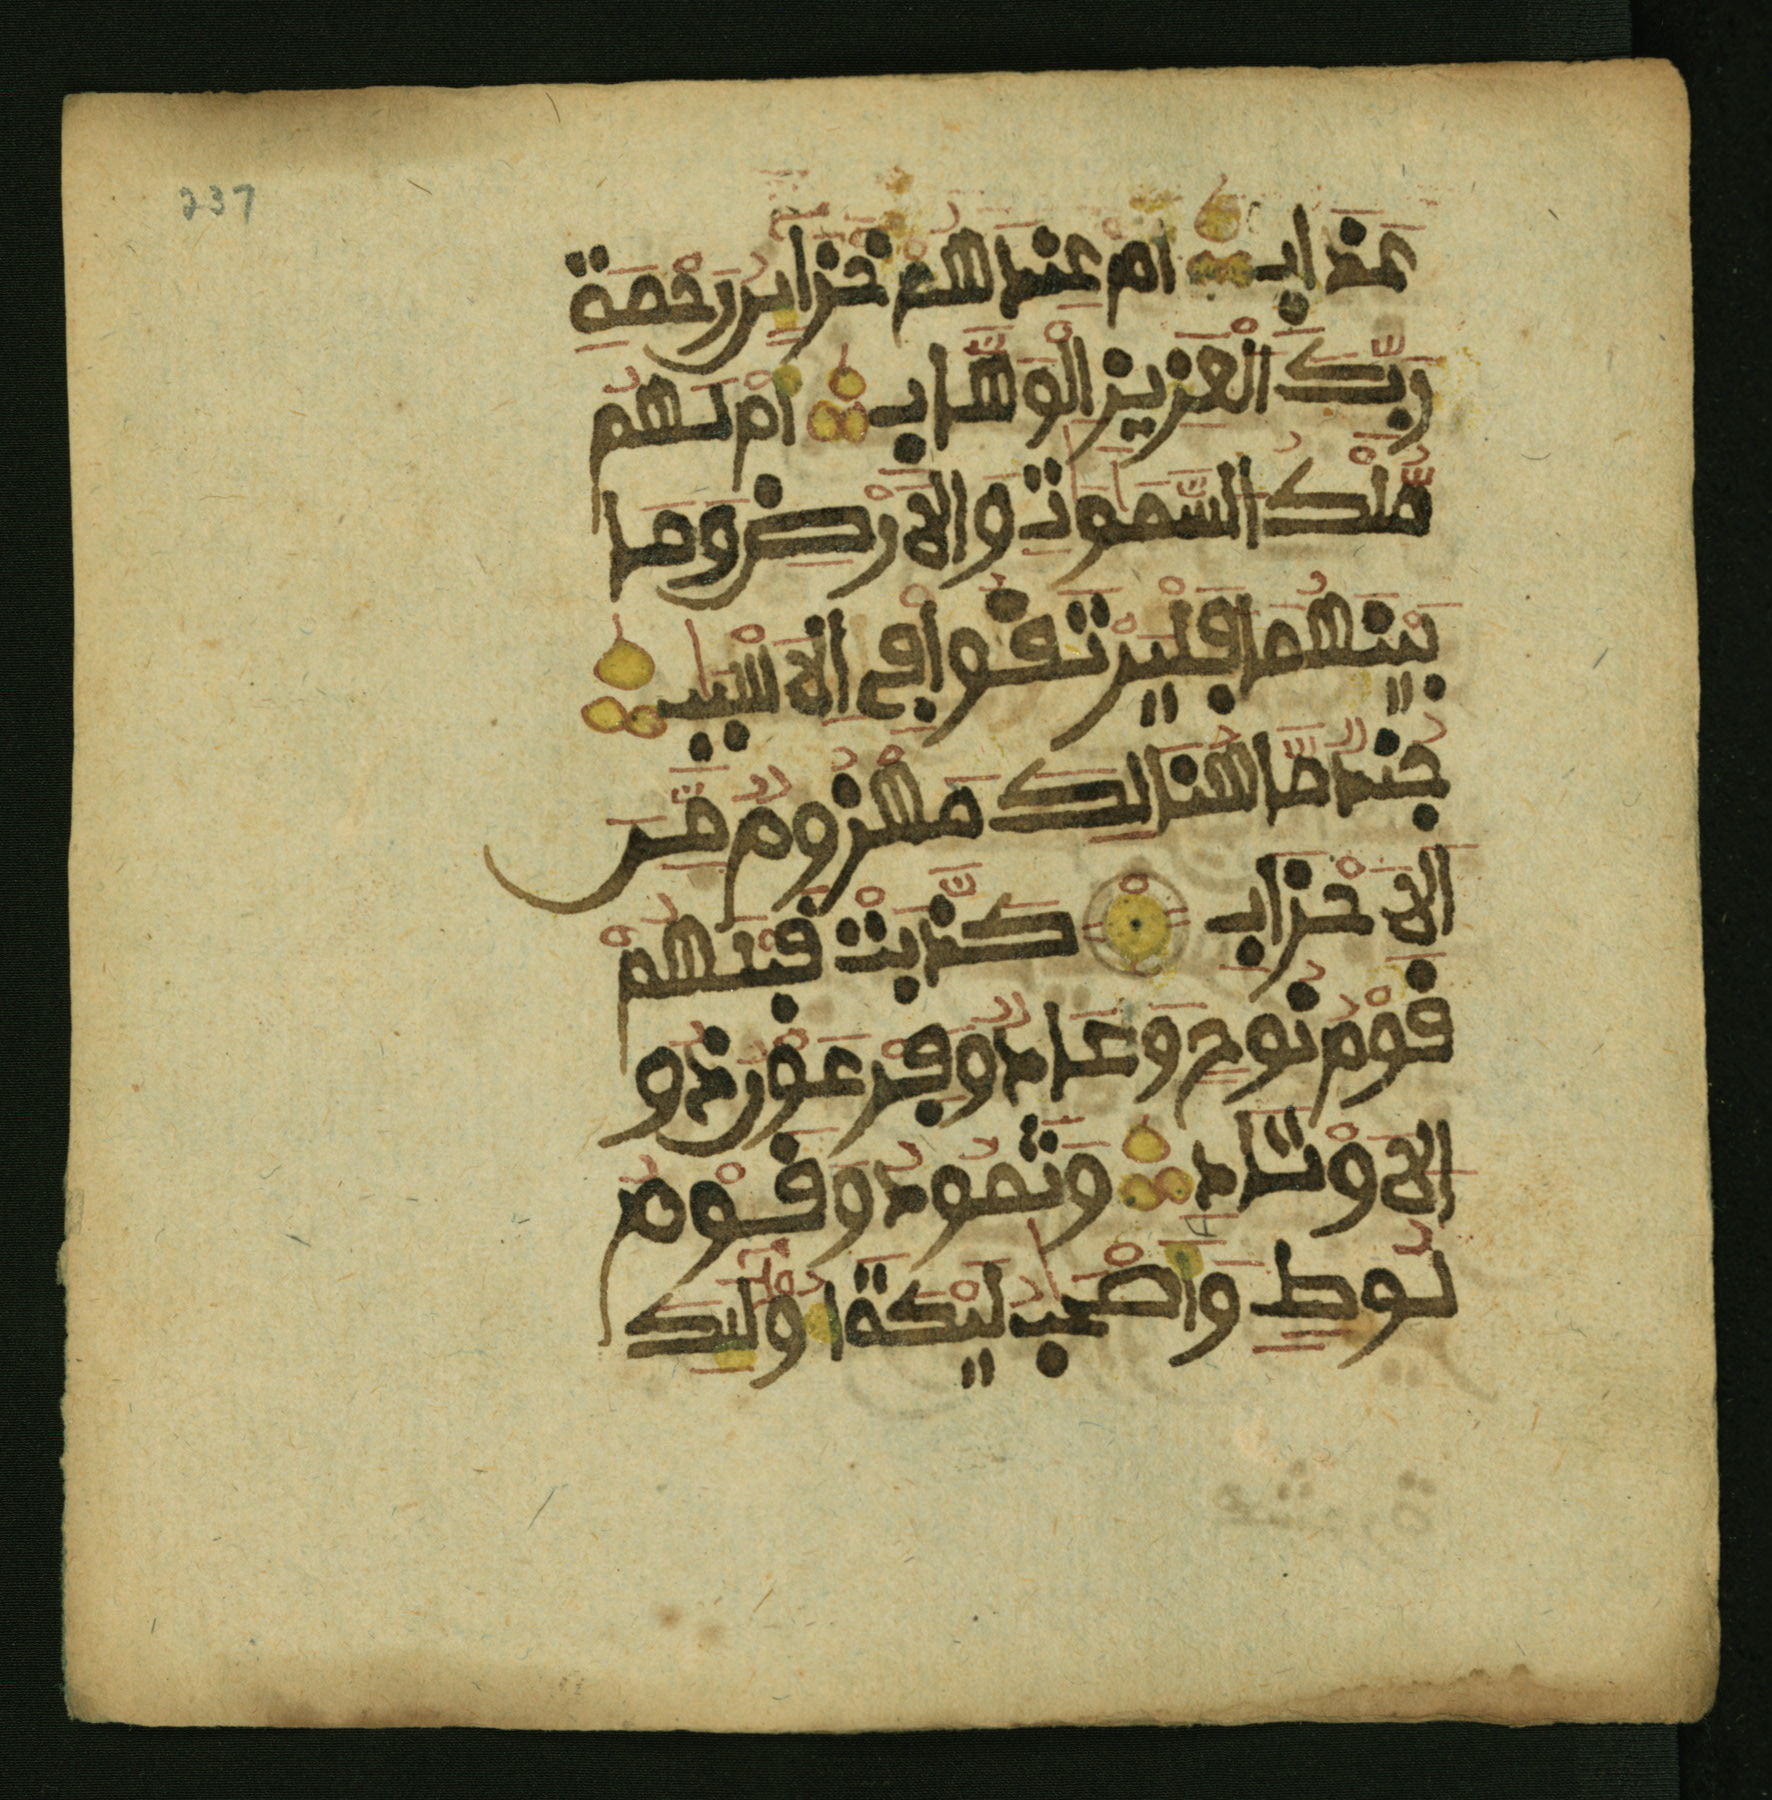 237
عَذَابِ أَمْ عِندَهُمْ خَزَايِنُ رَحْمَةِ
رَبِّكَ الْعَزِيزِ الْوَهَّابِ أَمْ لَهُم
مُّلْكُ السَّمَٰوَٰتِ وَالَارْضِ وَمَا
بَيْنَهُمَا فَلْيَرْتَقُوا فِي الَاسْبَٰبِ
جُندٌ مَّا هُنَالِكَ مَهْزُومٌ مِّنَ
الَاحْزَابِ كَذَّبَتْ قَبْلَهُمْ
قَوْمُ نُوحٍ وَعَادٌ وَفِرْعَوْنُ ذُو
الَاوْتَادِ وَثَمُودُ وَقَوْمُ
لُوطٍ وَأَصْحَٰبُ لَيْكَةَ أُوْلَٰئِكَ